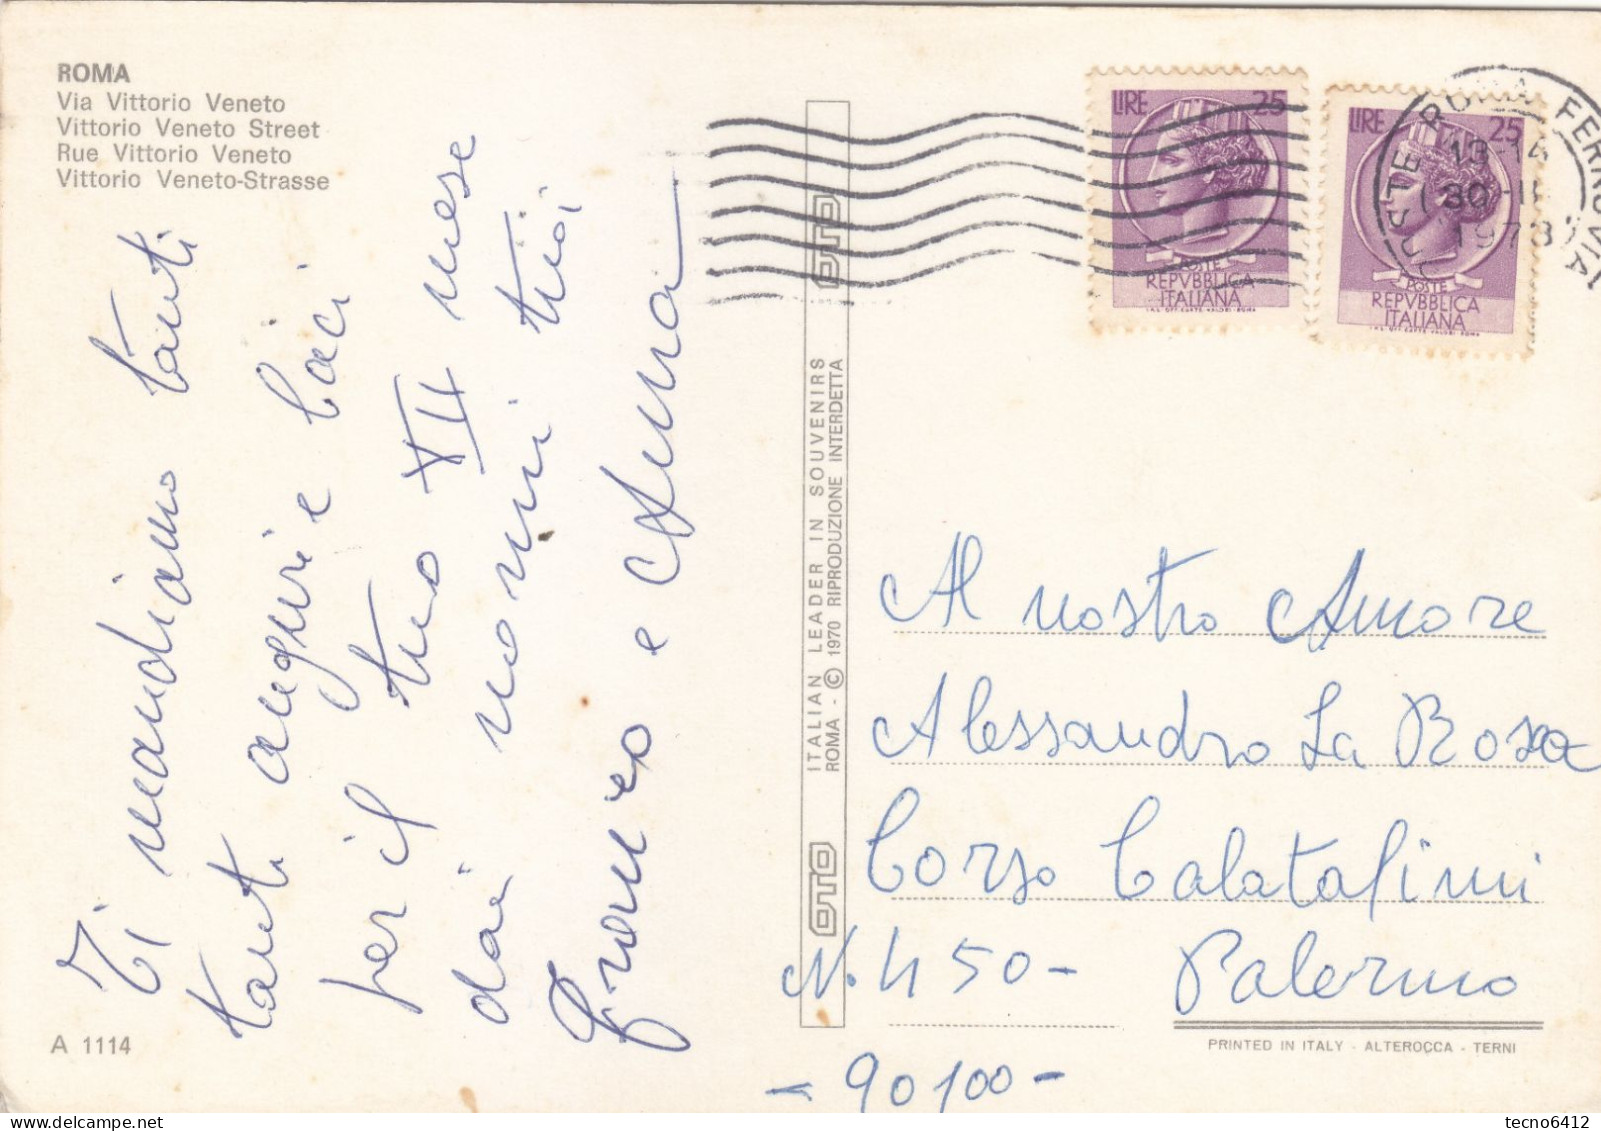 ROMA
Via Vittorio Veneto
Vittorio Veneto Street
Rue Vittorio Veneto
Vittorio Veneto-Strasse
Ti mandiamo tanti
tanti auguri e baci
per il tuo VII mese
dai nonni tuoi
Franco e Anna
A 1114
OTO
ITALIAN LEADER IN SOUVENIRS
ROMA - © 1970 RIPRODUZIONE INTERDETTA
OTO
LIRE 25
POSTE
REPVBBLICA
ITALIANA
I.P.S. OFF. CARTE-VALORI-ROMA
LIRE 25
POSTE
REPVBBLICA
ITALIANA
I.P.S. OFF. CARTE-VALORI-ROMA
ROMA FERROVIA
13-14
30-
1973
Al nostro Amore
Alessandro La Rosa
Corso Calatafimi
N. 450-
Palermo
- 90100 -
PRINTED IN ITALY - ALTEROCCA - TERNI
tecno6412